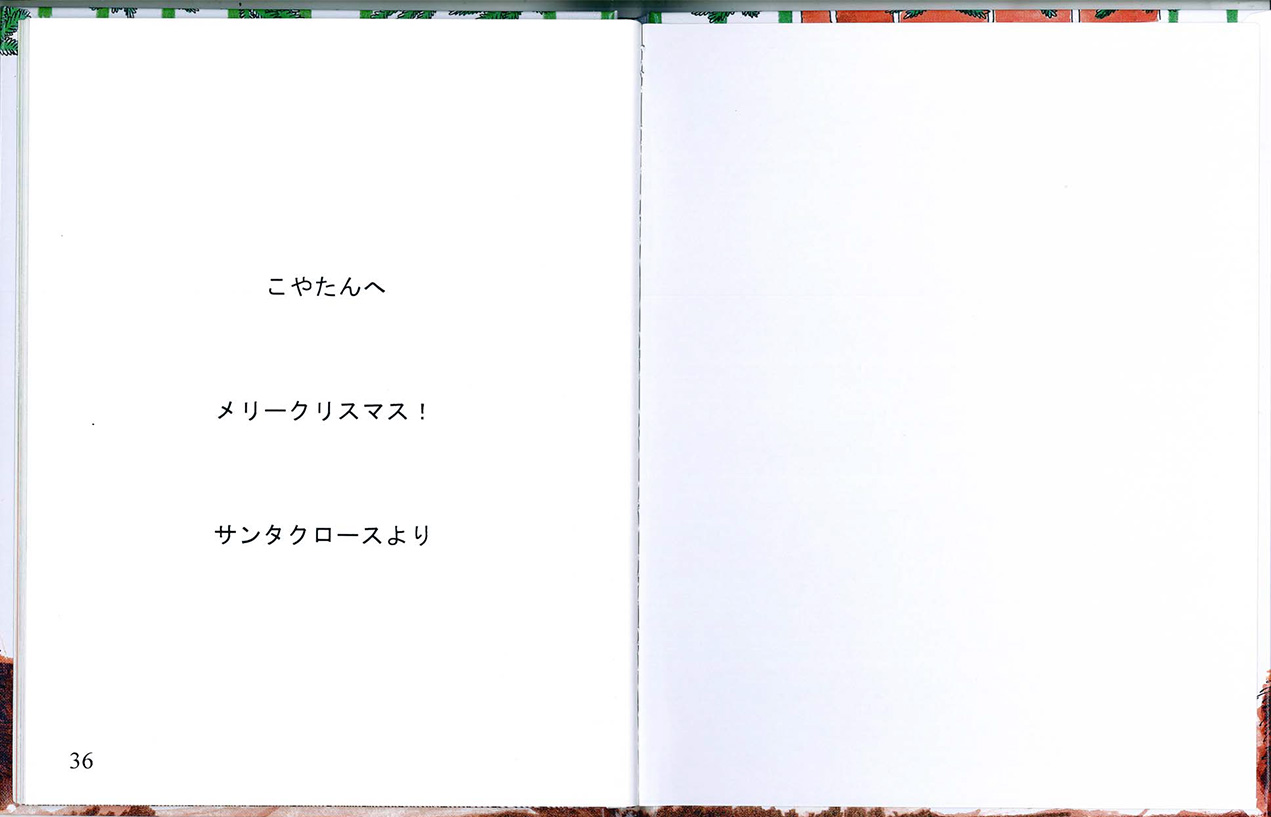 こやたんへ
メリークリスマス！
サンタクロースより
36